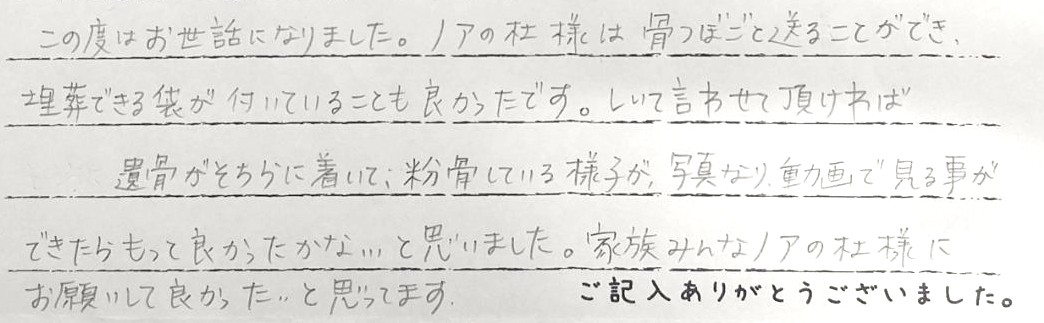 この度はお世話になりました。ノアの杜様は骨つぼごと送ることができ、
埋葬できる袋が付いていることも良かったです。しいて言わせて頂ければ
遺骨がそちらに着いて、粉骨している様子が、写真なり、動画で見る事が
できたらもって良かったかな…と思いました。家族みんなノアの杜様に
お願いして良かった‥と思ってます.
ご記入ありがとうございました。